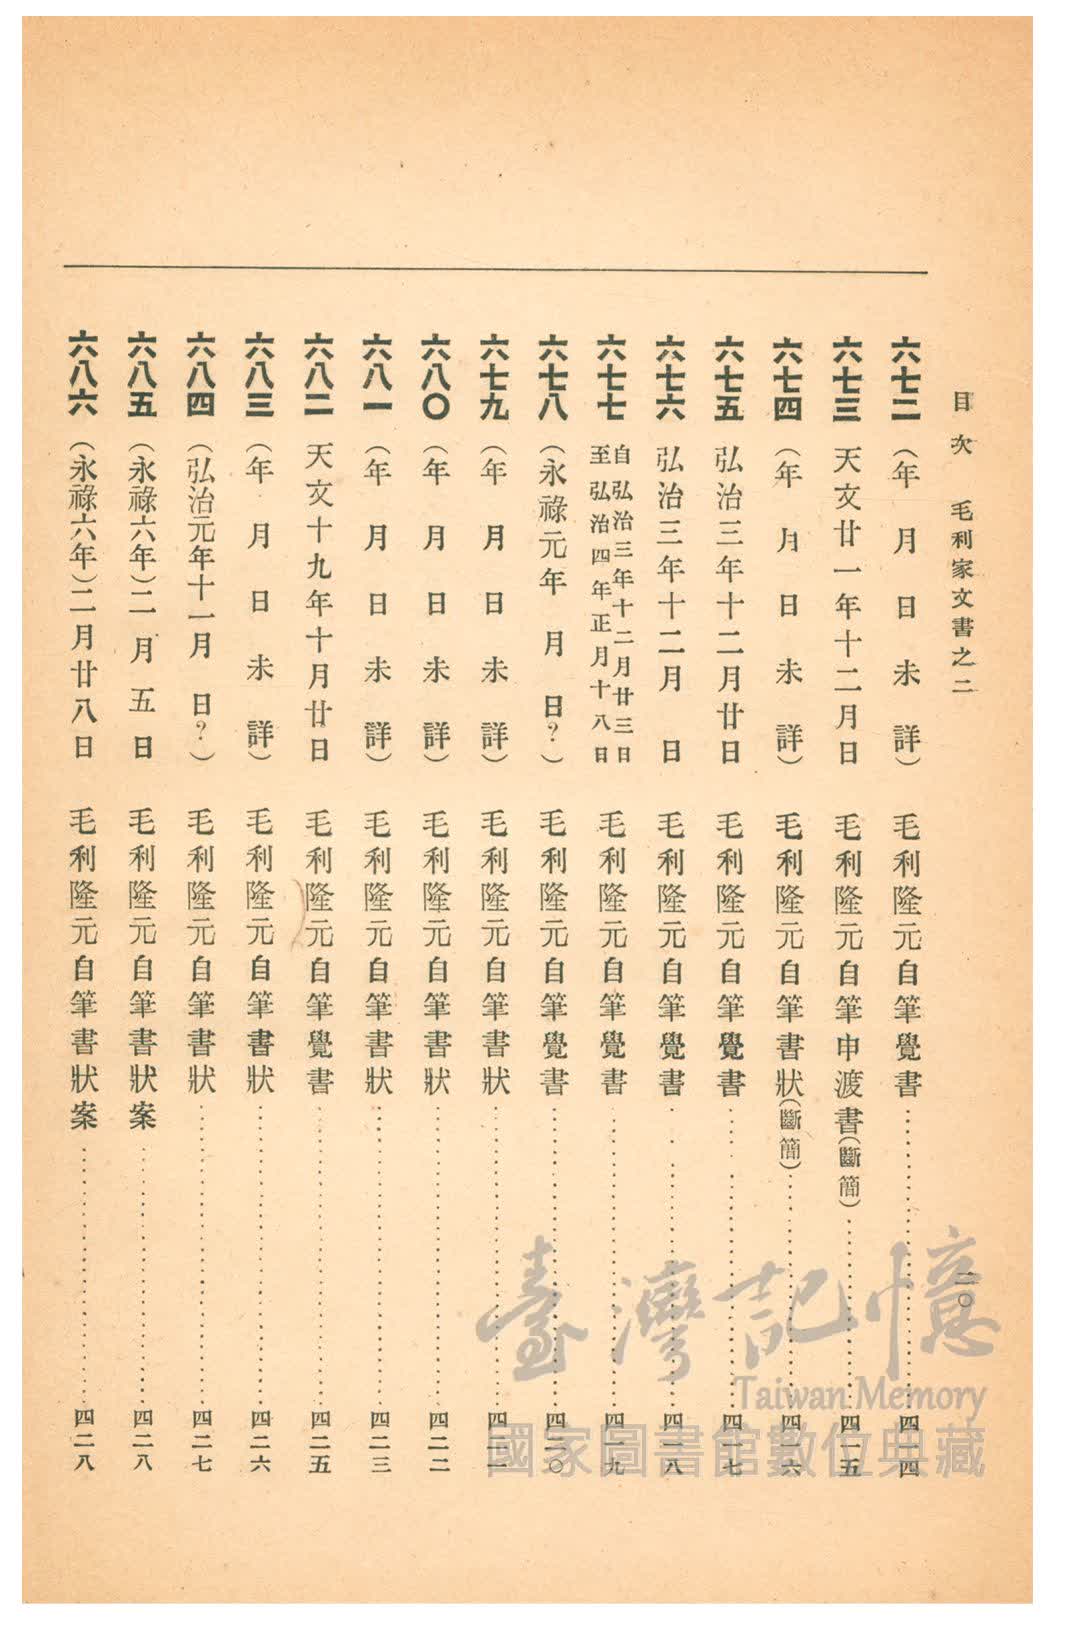 目次　毛利家文書之二
二〇
六七二　（年　月　日未詳）　毛利隆元自筆覺書……………四一四
六七三　天文廿一年十二月日　毛利隆元自筆申渡書（斷簡）……………四一五
六七四　（年　月　日未詳）　毛利隆元自筆書狀（斷簡）……………四一六
六七五　弘治三年十二月廿日　毛利隆元自筆覺書……………四一七
六七六　弘治三年十二月　日　毛利隆元自筆覺書……………四一八
六七七　自弘治三年十二月廿三日至弘治四年正月十八日　毛利隆元自筆覺書……………四一九
六七八　（永祿元年　月　日？）　毛利隆元自筆覺書……………四二〇
六七九　（年　月　日未詳）　毛利隆元自筆書狀……………四二一
六八〇　（年　月　日未詳）　毛利隆元自筆書狀……………四二二
六八一　（年　月　日未詳）　毛利隆元自筆書狀……………四二三
六八二　天文十九年十月廿日　毛利隆元自筆覺書……………四二五
六八三　（年　月　日未詳）　毛利隆元自筆書狀……………四二六
六八四　（弘治元年十一月　日？）　毛利隆元自筆書狀……………四二七
六八五　（永祿六年）二月五日　毛利隆元自筆書狀案……………四二八
六八六　（永祿六年）二月廿八日　毛利隆元自筆書狀案……………四二八
臺灣記憶
Taiwan Memory
國家圖書館數位典藏